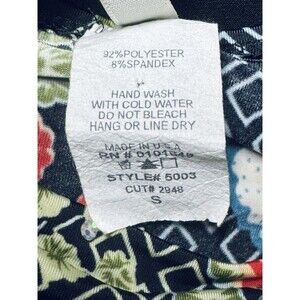 92%POLYESTER
8%SPANDEX
HAND WASH
WITH COLD WATER
DO NOT BLEACH
HANG OR LINE DRY
MADE IN U.S.A
RN# 0101849
STYLE# 5003
CUT# 2948
S